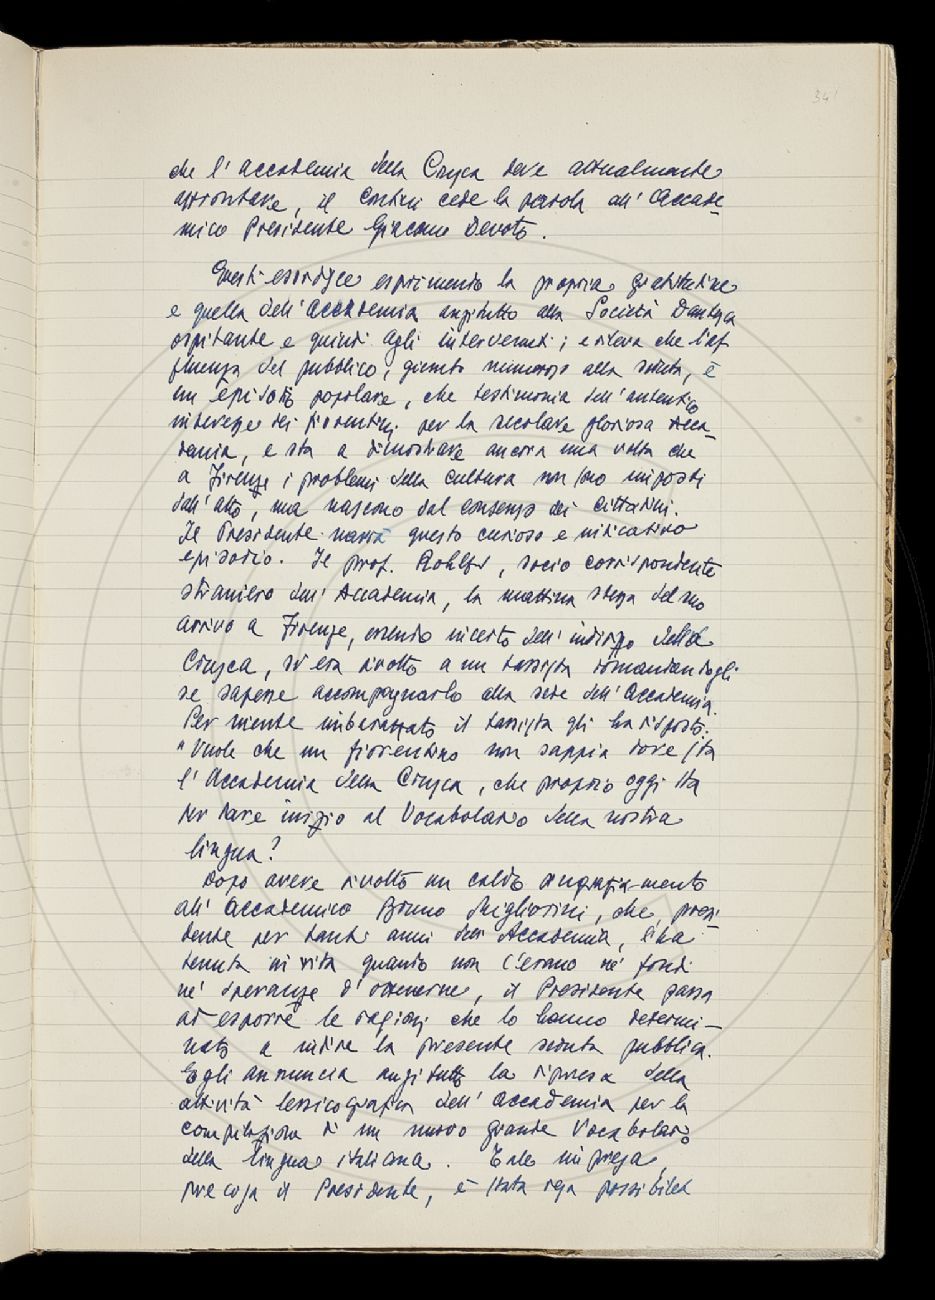 341
che l'Accademia della Crusca deve attualmente
affrontare, il Contini cede la parola all'Accade-
mico Presidente Giacomo Devoto.
Questi esordisce esprimendo la propria gratitudine
e quella dell'Accademia anzitutto alla Società Dantesca
ospitante e quindi agli intervenuti; e rileva che l'af
fluenza del pubblico, giunto numeroso alla seduta, è
un episodio popolare, che testimonia dell'autentico
interesse dei fiorentini per la secolare gloriosa Acca-
demia, e sta a dimostrare ancora una volta che
a Firenze i problemi della cultura non sono imposti
dall'alto, ma nascono dal consenso dei cittadini.
Il Presidente narra questo curioso e indicativo
episodio. Il prof. Rohlfs, socio corrispondente
straniero dell'Accademia, la mattina stessa del suo
arrivo a Firenze, essendo incerto dell'indirizzo della
Crusca, si era rivolto a un tassista domandandogli
se sapesse accompagnarlo alla sede dell'Accademia.
Per niente imbarazzato il tassista gli ha risposto:
"Vuole che un fiorentino non sappia dove sta
l'Accademia della Crusca, che proprio oggi sta
per dare inizio al Vocabolario della nostra
lingua?
Dopo avere rivolto un caldo ringraziamento
all'Accademico Bruno Migliorini, che, presi-
dente per tanti anni dell'Accademia, l'ha
tenuta in vita quando non c'erano né fondi
né speranze d'ottenerne, il Presidente passa
ad esporre le ragioni che lo hanno determi-
nato a indire la presente seduta pubblica.
Egli annuncia anzitutto la ripresa della
attività lessicografica dell'Accademia per la
compilazione di un nuovo grande Vocabolario
della lingua italiana. Tale impresa,
precisa il Presidente, è stata resa possibile